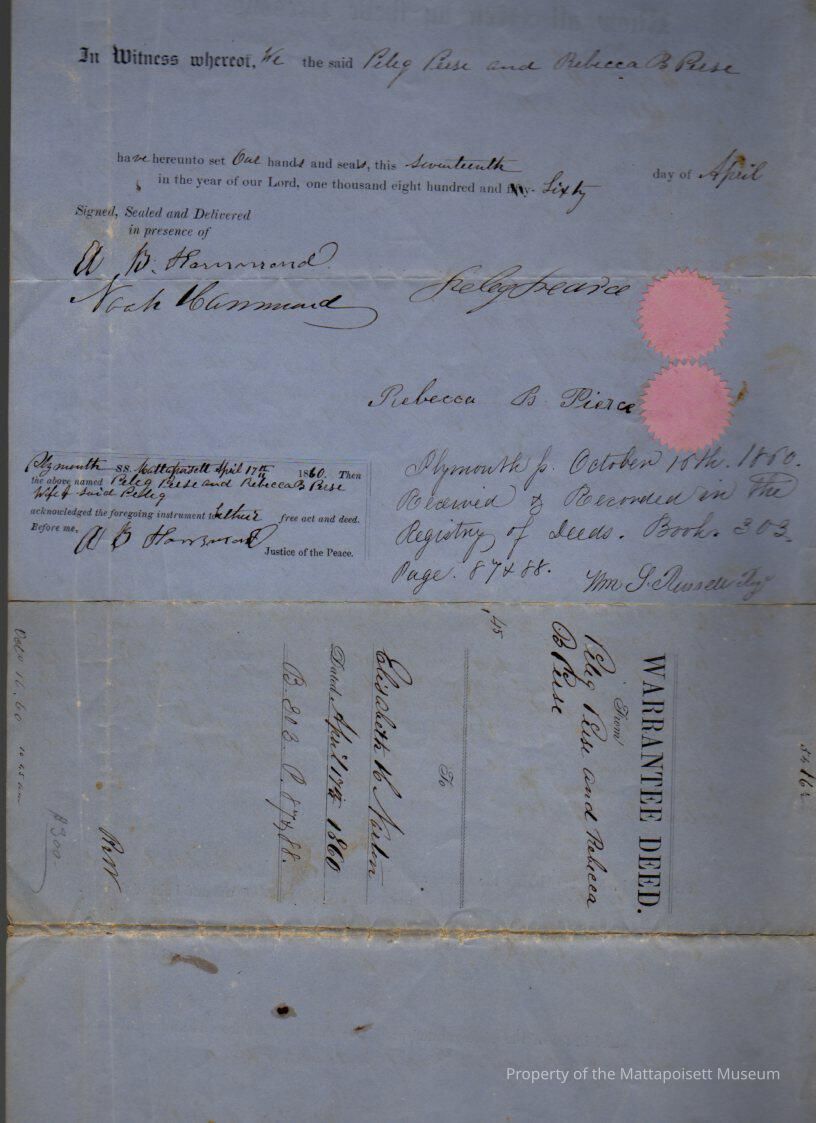 In Witness whereof, We the said Peleg Peirse and Rebecca B Peirse
have hereunto set Our hands and seals, this seventeenth day of April
in the year of our Lord, one thousand eight hundred and fifty- Sixty
Signed, Sealed and Delivered
in presence of
A B. Hammond
Noah Hammond
Peleg Pearce
Rebecca B Pierce
Plymouth SS. Mattapoisett April 17th 1860. Then
the above named Peleg Peirse and Rebecca B Peirse
Wife of said Peleg
acknowledged the foregoing instrument to be their free act and deed.
Before me, A B Hammond Justice of the Peace.
Plymouth ss. October 16th. 1860.
Received & Recorded in the
Registry of Deeds. Book. 303.
Page. 87 & 88.
Wm S. Russell Regr
WARRANTEE DEED.
From
Peleg Peirse and Rebecca
B Peirse
,45
To
Elisabeth H
Dated April 17th 1860
B. 303. P. 87 & 88.
R.W
$300
Octr 16. 60
Property of the Mattapoisett Museum